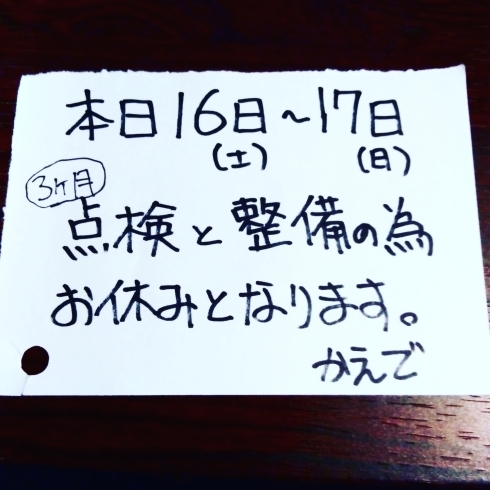 本日16日～17日
(土) (日)
3ヶ月
点検と整備の為
お休みとなります。
かえで